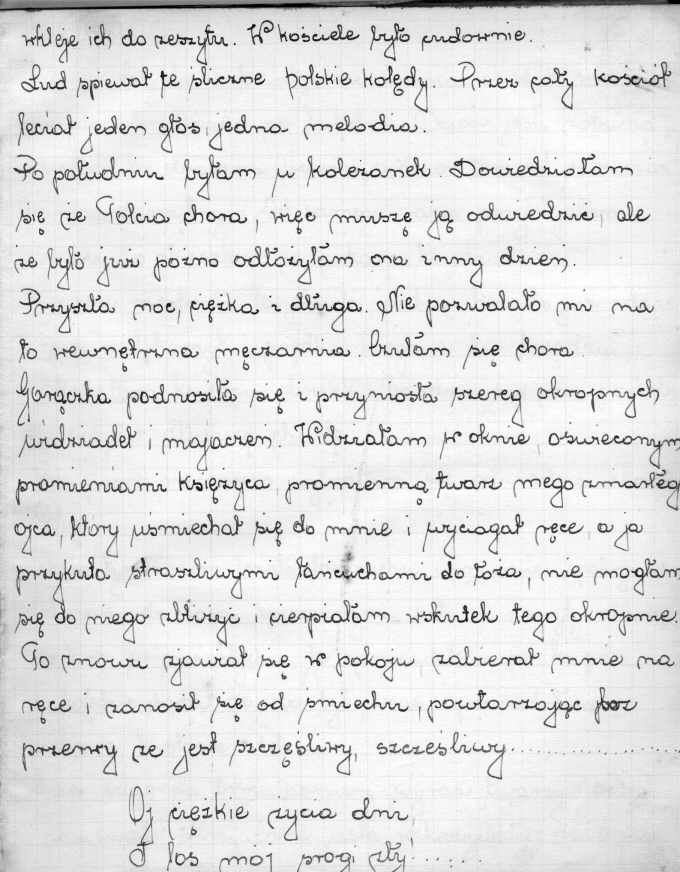 wkleje ich do zeszytu. W kościele było cudownie.
Lud spiewał te sliczne polskie kolędy. Przez cały kościół
leciał jeden głos, jedna melodia.
Po południu byłam u koleżanek. Dowiedziałam
się że Tolcia chora, więc muszę ją odwiedzić, ale
że było już pózno odłożyłam na inny dzien.
Przyszła noc, ciężka i długa. Nie pozwalało mi na
to wewnętrzna męczarnia. Czułam się chora.
Gorączka podnosiła się i przyniosła szereg okropnych
widziadeł i majaczeń. Widziałam w oknie, oswieconym
promieniami księzyca, promienną twarz mego zmarłeg
ojca, który usmiechał się do mnie i wyciagał ręce, a ja
przykuta straszliwymi łancuchami do łoza, nie mogłam
się do niego zbliżyć i cierpiałam wskutek tego okropnie.
To znowu zjawiał się w pokoju, zabierał mnie na
ręce i zanosił się od smiechu, powtarzając bez
przerwy ze jest szczęsliwy, szczesliwy....................
Oj ciężkie zycia dni,
I los mój srogi zły!.....